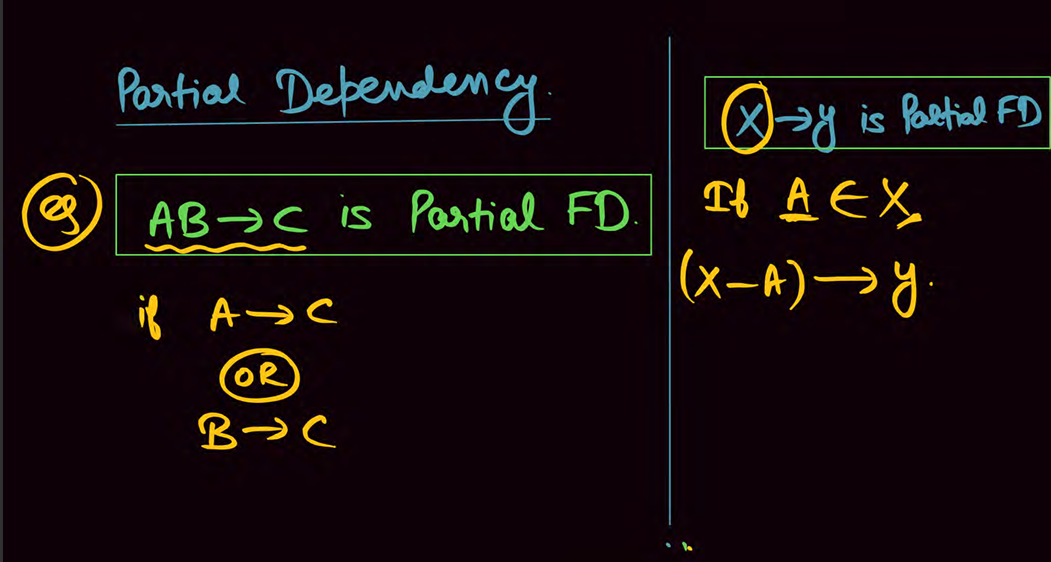 Partial Dependency.
eg AB → C is Partial FD.
if A → C
OR
B → C
X → y is Partial FD
If A ∈ X
(X – A) → y.